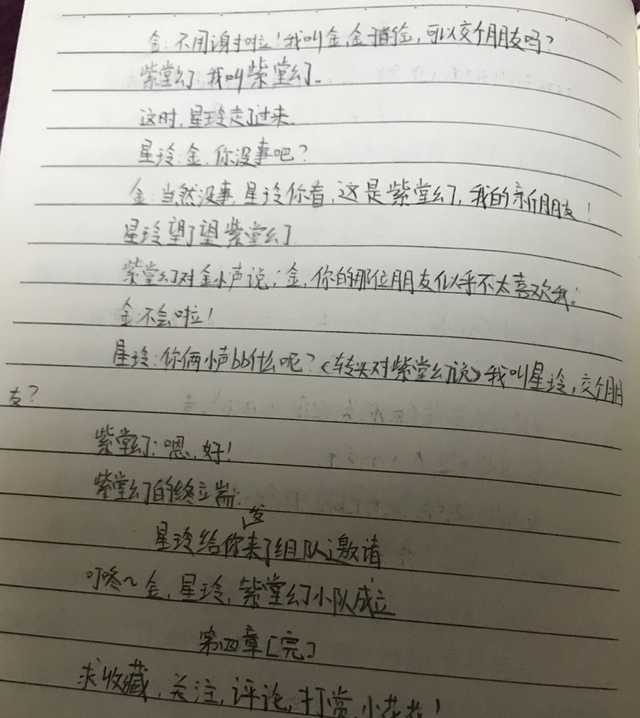 金:不用谢啦!我叫金,金子的金,可以交个朋友吗?
紫堂幻:我叫紫堂幻。
这时,星玲走了过来
星玲:金,你没事吧?
金:当然没事,星玲你看,这是紫堂幻,我的新朋友!
星玲望了望紫堂幻
紫堂幻对金小声说:金,你的那位朋友似乎不太喜欢我。
金:不会啦!
星玲:你俩小声bb什么呢?《转头对紫堂幻说》我叫星玲,交个朋
友?
紫堂幻:嗯,好!
紫堂幻的终端:
星玲给你发来了组队邀请
叮咚~金,星玲,紫堂幻小队成立
第四章[完]
求收藏,关注,评论,打赏,小花花!